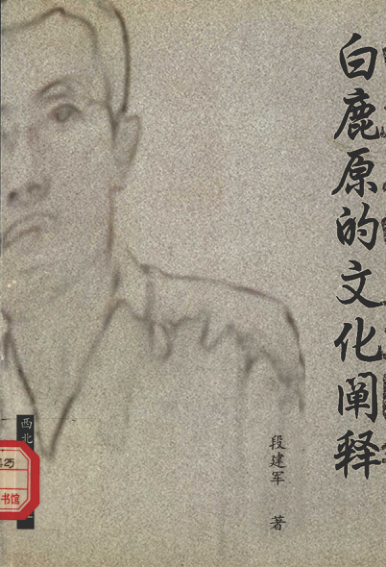 白鹿原的文化阐释
段建军 著
西北
书馆